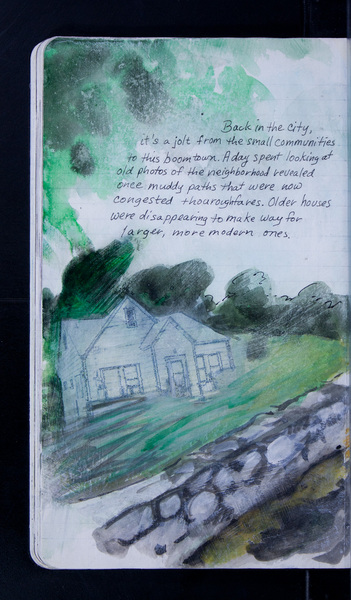 Back in the city,
it's a jolt from the small communities
to this boomtown. A day spent looking at
old photos of the neighborhood revealed
once muddy paths that were now
congested thouroughfares. Older houses
were disappearing to make way for
larger, more modern ones.